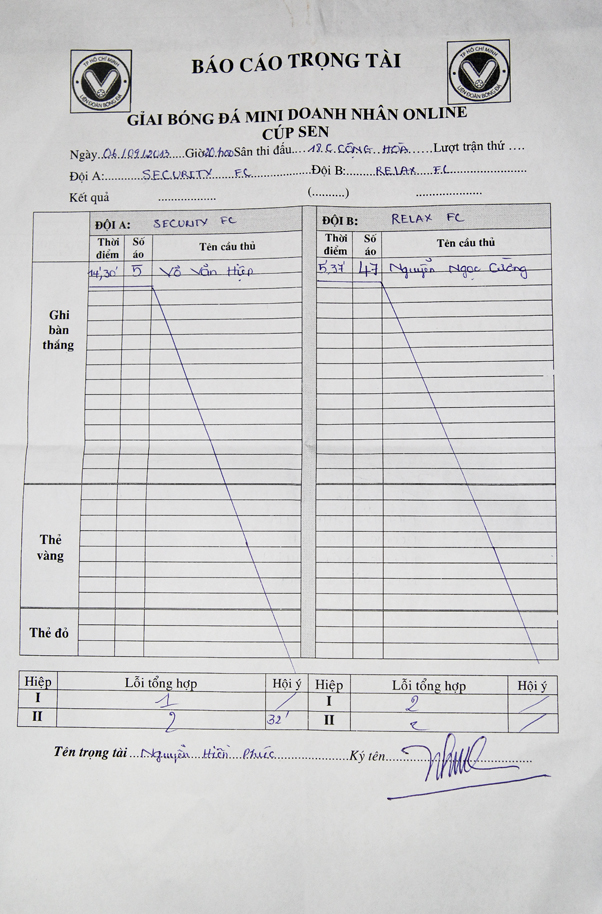 TP HỒ CHÍ MINH
LIÊN ĐOÀN BÓNG ĐÁ
BÁO CÁO TRỌNG TÀI
TP HỒ CHÍ MINH
LIÊN ĐOÀN BÓNG ĐÁ
GIẢI BÓNG ĐÁ MINI DOANH NHÂN ONLINE
CÚP SEN
Ngày 06/09/2013 Giờ 20h00 Sân thi đấu 18.C. CỘNG HOÀ Lượt trận thứ ....
Đội A: SECURITY FC Đội B: RELAX FC
Kết quả .................. (..........) ..................
ĐỘI A: SECURITY FC ĐỘI B: RELAX FC
Thời điểm Số áo Tên cầu thủ Thời điểm Số áo Tên cầu thủ
Ghi bàn thắng 14',30' 5 Võ Văn Hiệp 5',37' 47 Nguyễn Ngọc Cường
Thẻ vàng
Thẻ đỏ
Hiệp Lỗi tổng hợp Hội ý Hiệp Lỗi tổng hợp Hội ý
I 1 / I 2 /
II 2 32' II /
Tên trọng tài Nguyễn Hiền Phúc Ký tên